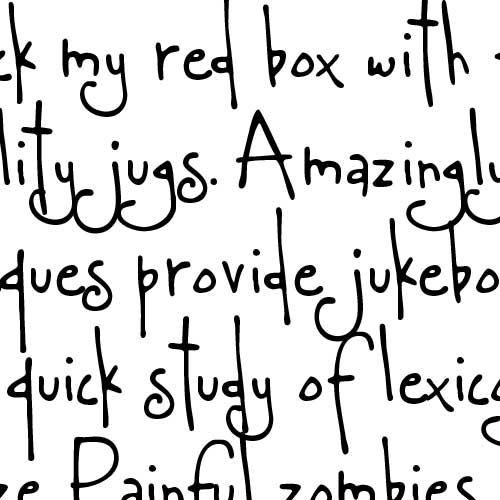 ck my red box with
lity jugs. Amazingly
ques provide jukebo
quick study of lexico
ze Painful zombies